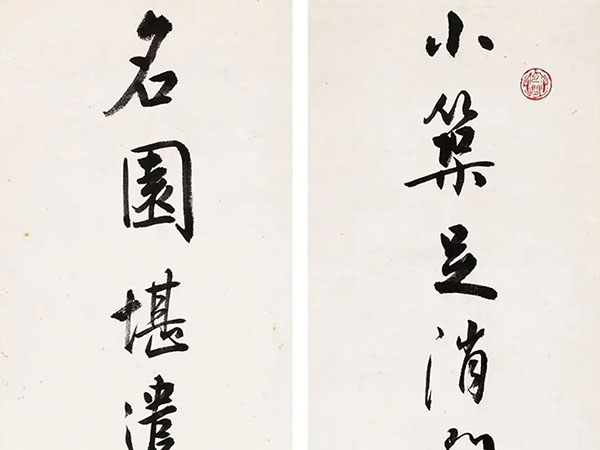 小築足消
名園堪遣